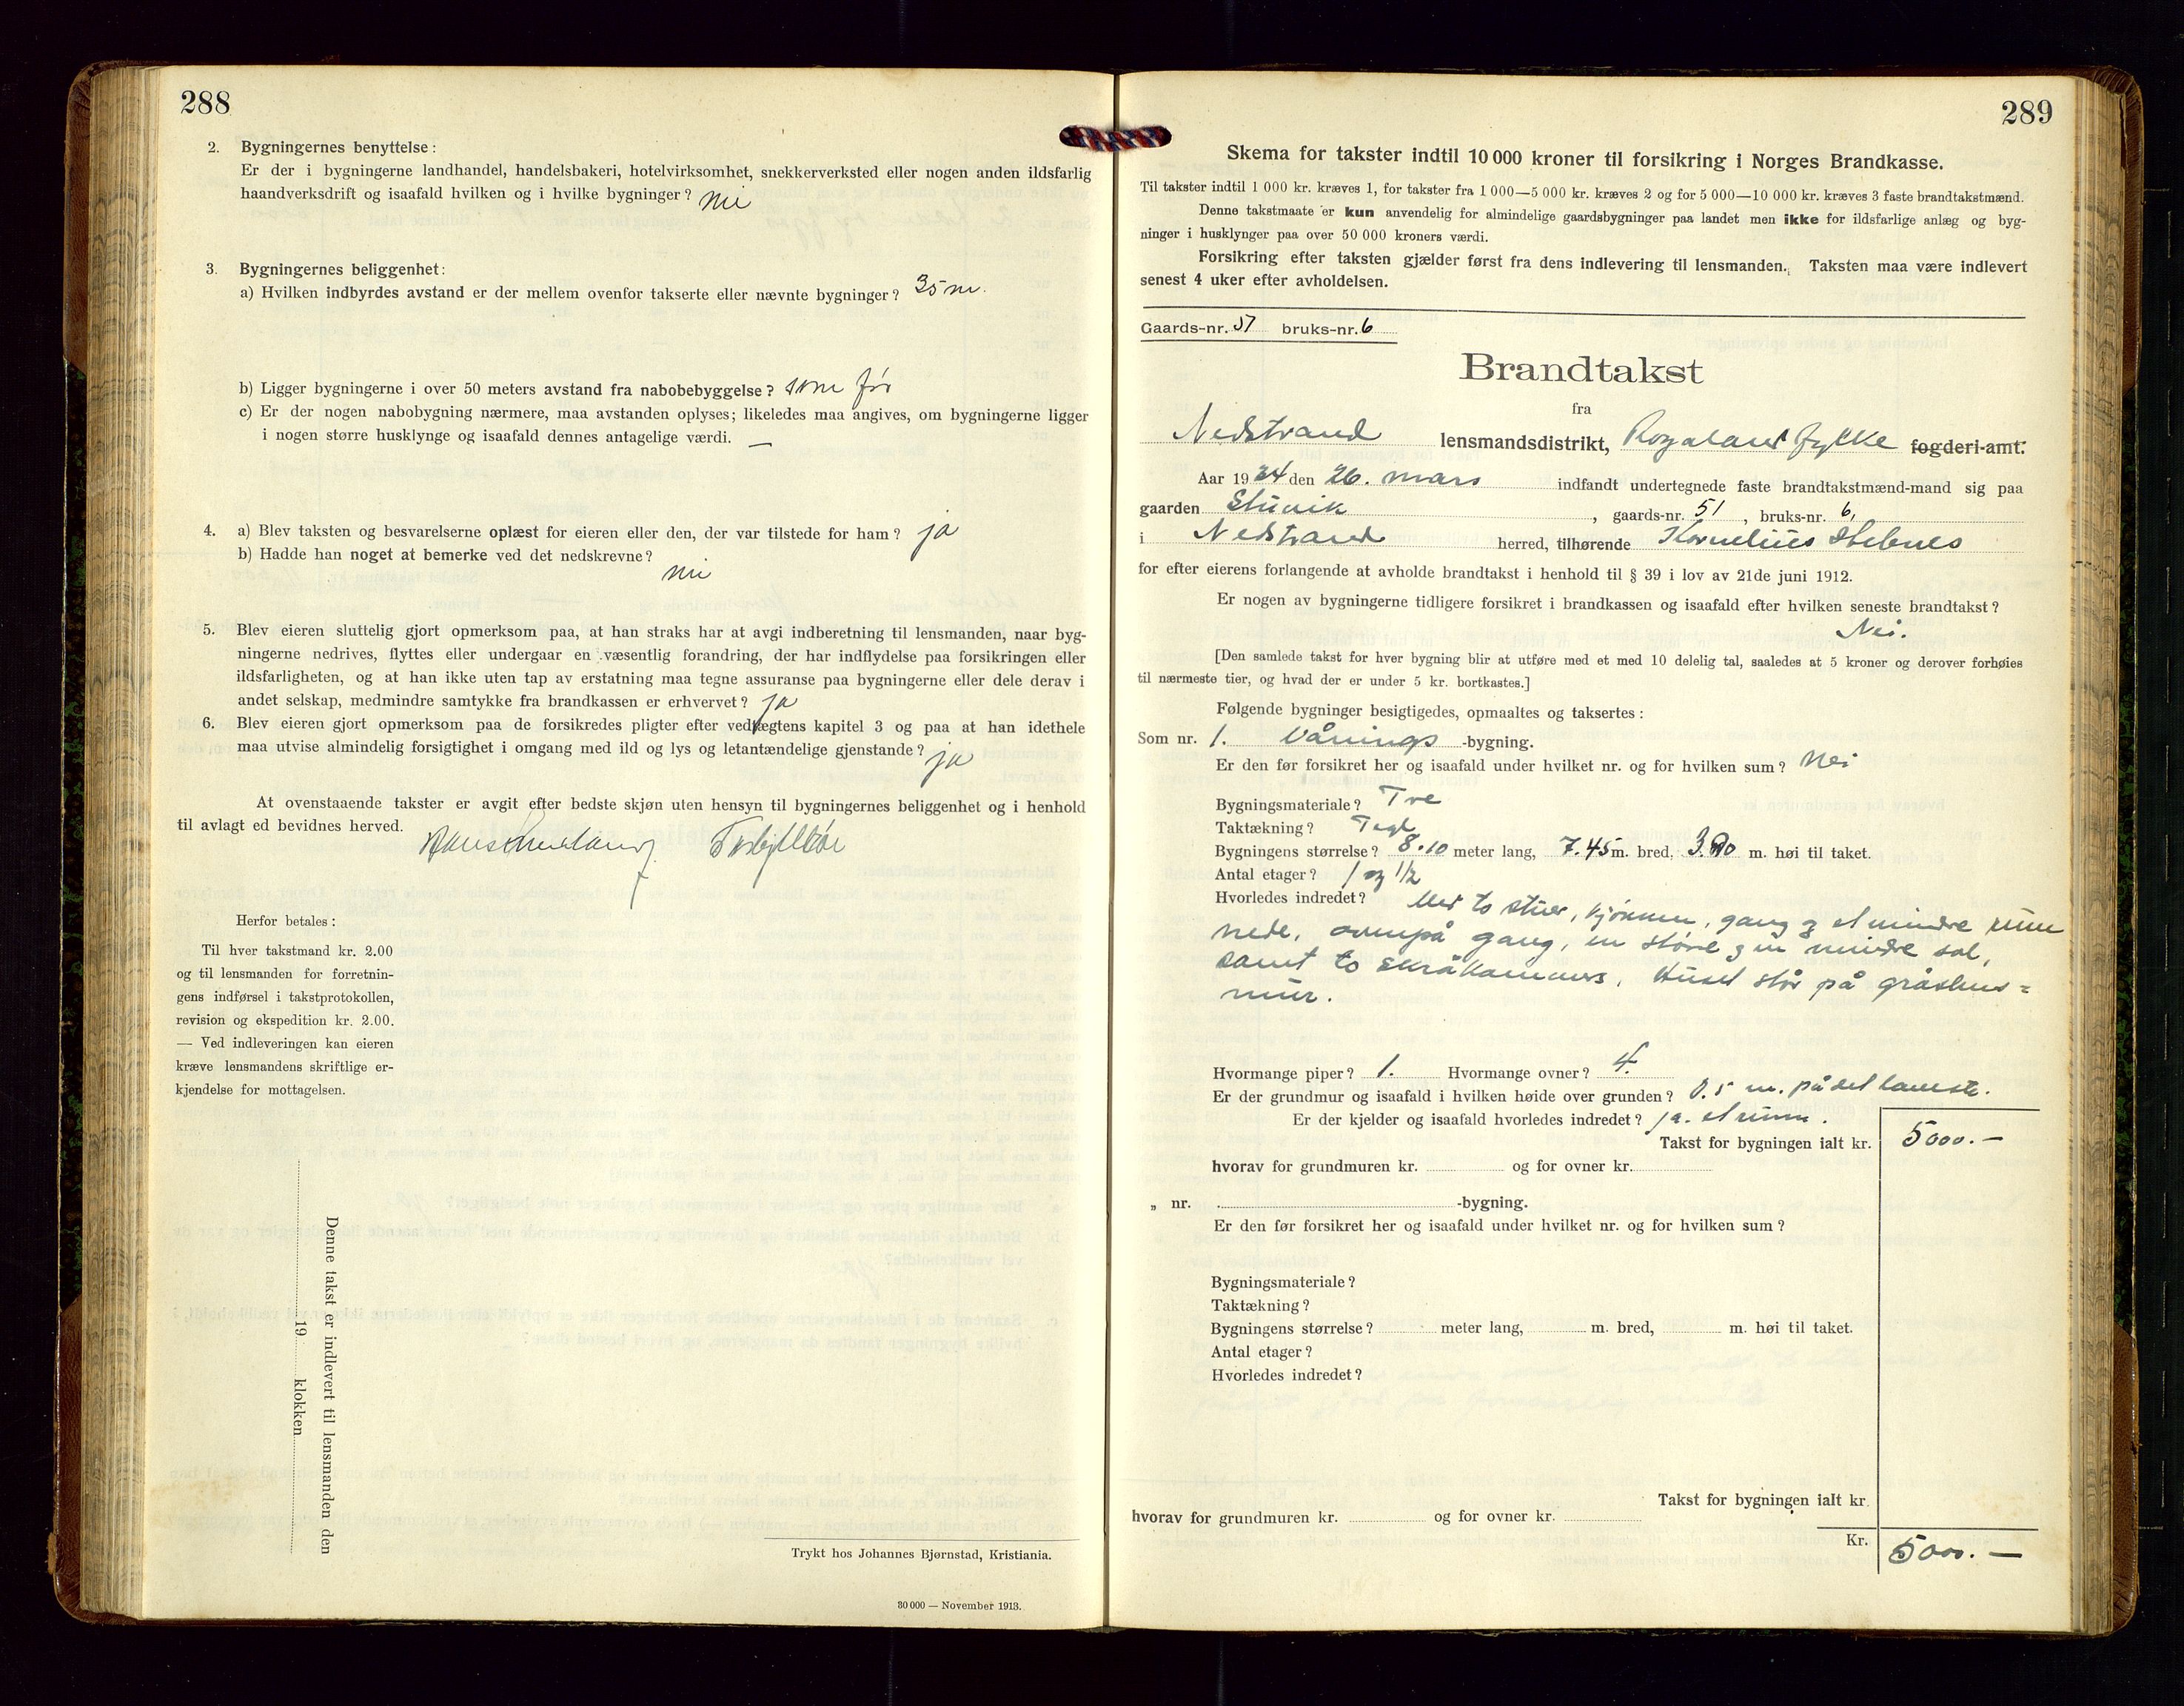 288
2. Bygningernes benyttelse:
Er der i bygningerne landhandel, handelsbakeri, hotelvirksomhet, snekkerverksted eller nogen anden ildsfarlig
haandverksdrift og isaafald hvilken og i hvilke bygninger? nei
3. Bygningernes beliggenhet:
a) Hvilken indbyrdes avstand er der mellem ovenfor takserte eller nævnte bygninger? 35 m.
b) Ligger bygningerne i over 50 meters avstand fra nabobebyggelse? som før
c) Er der nogen nabobygning nærmere, maa avstanden oplyses; likeledes maa angives, om bygningerne ligger
i nogen større husklynge og isaafald dennes antagelige værdi. —
4. a) Blev taksten og besvarelserne oplæst for eieren eller den, der var tilstede for ham? ja
b) Hadde han noget at bemerke ved det nedskrevne?
nei
5. Blev eieren sluttelig gjort opmerksom paa, at han straks har at avgi indberetning til lensmanden, naar byg-
ningerne nedrives, flyttes eller undergaar en væsentlig forandring, der har indflydelse paa forsikringen eller
ildsfarligheten, og at han ikke uten tap av erstatning maa tegne assuranse paa bygningerne eller dele derav i
andet selskap, medmindre samtykke fra brandkassen er erhvervet? ja
6. Blev eieren gjort opmerksom paa de forsikredes pligter efter vedtægtens kapitel 3 og paa at han idethele
maa utvise almindelig forsigtighet i omgang med ild og lys og letantændelige gjenstande? ja
At ovenstaaende takster er avgit efter bedste skjøn uten hensyn til bygningernes beliggenhet og i henhold
til avlagt ed bevidnes herved.
Herfor betales:
Til hver takstmand kr. 2.00
og til lensmanden for forretnin-
gens indførsel i takstprotokollen,
revision og ekspedition kr. 2.00.
— Ved indleveringen kan eieren
kræve lensmandens skriftlige er-
kjendelse for mottagelsen.
Denne takst er indlevert til lensmanden den
19 klokken
Trykt hos Johannes Bjørnstad, Kristiania.
30 000 — November 1913.
289
Skema for takster indtil 10 000 kroner til forsikring i Norges Brandkasse.
Til takster indtil 1 000 kr. kræves 1, for takster fra 1 000—5 000 kr. kræves 2 og for 5 000—10 000 kr. kræves 3 faste brandtakstmænd.
Denne takstmaate er kun anvendelig for almindelige gaardsbygninger paa landet men ikke for ildsfarlige anlæg og byg-
ninger i husklynger paa over 50 000 kroners værdi.
Forsikring efter taksten gjælder først fra dens indlevering til lensmanden. Taksten maa være indlevert
senest 4 uker efter avholdelsen.
Gaards-nr. 51 bruks-nr. 6
Brandtakst
fra
Nedstrand lensmandsdistrikt, Rogaland fylke fogderi-amt.
Aar 1934 den 26. mars indfandt undertegnede faste brandtakstmænd-mand sig paa
gaarden Stuvik, gaards-nr. 51, bruks-nr. 6,
i Nedstrand herred, tilhørende Kornelius Stebnes
for efter eierens forlangende at avholde brandtakst i henhold til § 39 i lov av 21de juni 1912.
Er nogen av bygningerne tidligere forsikret i brandkassen og isaafald efter hvilken seneste brandtakst?
Nei.
[Den samlede takst for hver bygning blir at utføre med et med 10 delelig tal, saaledes at 5 kroner og derover forhøies
til nærmeste tier, og hvad der er under 5 kr. bortkastes.]
Følgende bygninger besigtigedes, opmaaltes og taksertes:
Som nr. 1. Vånings -bygning.
Er den før forsikret her og isaafald under hvilket nr. og for hvilken sum? Nei
Bygningsmateriale? Tre
Taktækning? Tegl
Bygningens størrelse? 8.10 meter lang, 7.45 m. bred, m. høi til taket.
Antal etager? 1 og 1/2
Hvorledes indredet? Med to stuer, kjøkken, gang og et mindre rum
nede, ovenpå gang, en større og en mindre sal,
samt to skråkammers. Huset står på gråstens=
mur.
Hvormange piper? 1. Hvormange ovner? 4.
Er der grundmur og isaafald i hvilken høide over grunden? 0.5 m. på det laveste.
Er der kjelder og isaafald hvorledes indredet? ja. et rum.
Takst for bygningen ialt kr. 5000.—
hvorav for grundmuren kr. og for ovner kr.
„ nr. -bygning.
Er den før forsikret her og isaafald under hvilket nr. og for hvilken sum?
Bygningsmateriale?
Taktækning?
Bygningens størrelse? meter lang, m. bred, m. høi til taket.
Antal etager?
Hvorledes indredet?
Takst for bygningen ialt kr.
hvorav for grundmuren kr. og for ovner kr.
Kr. 5000.—